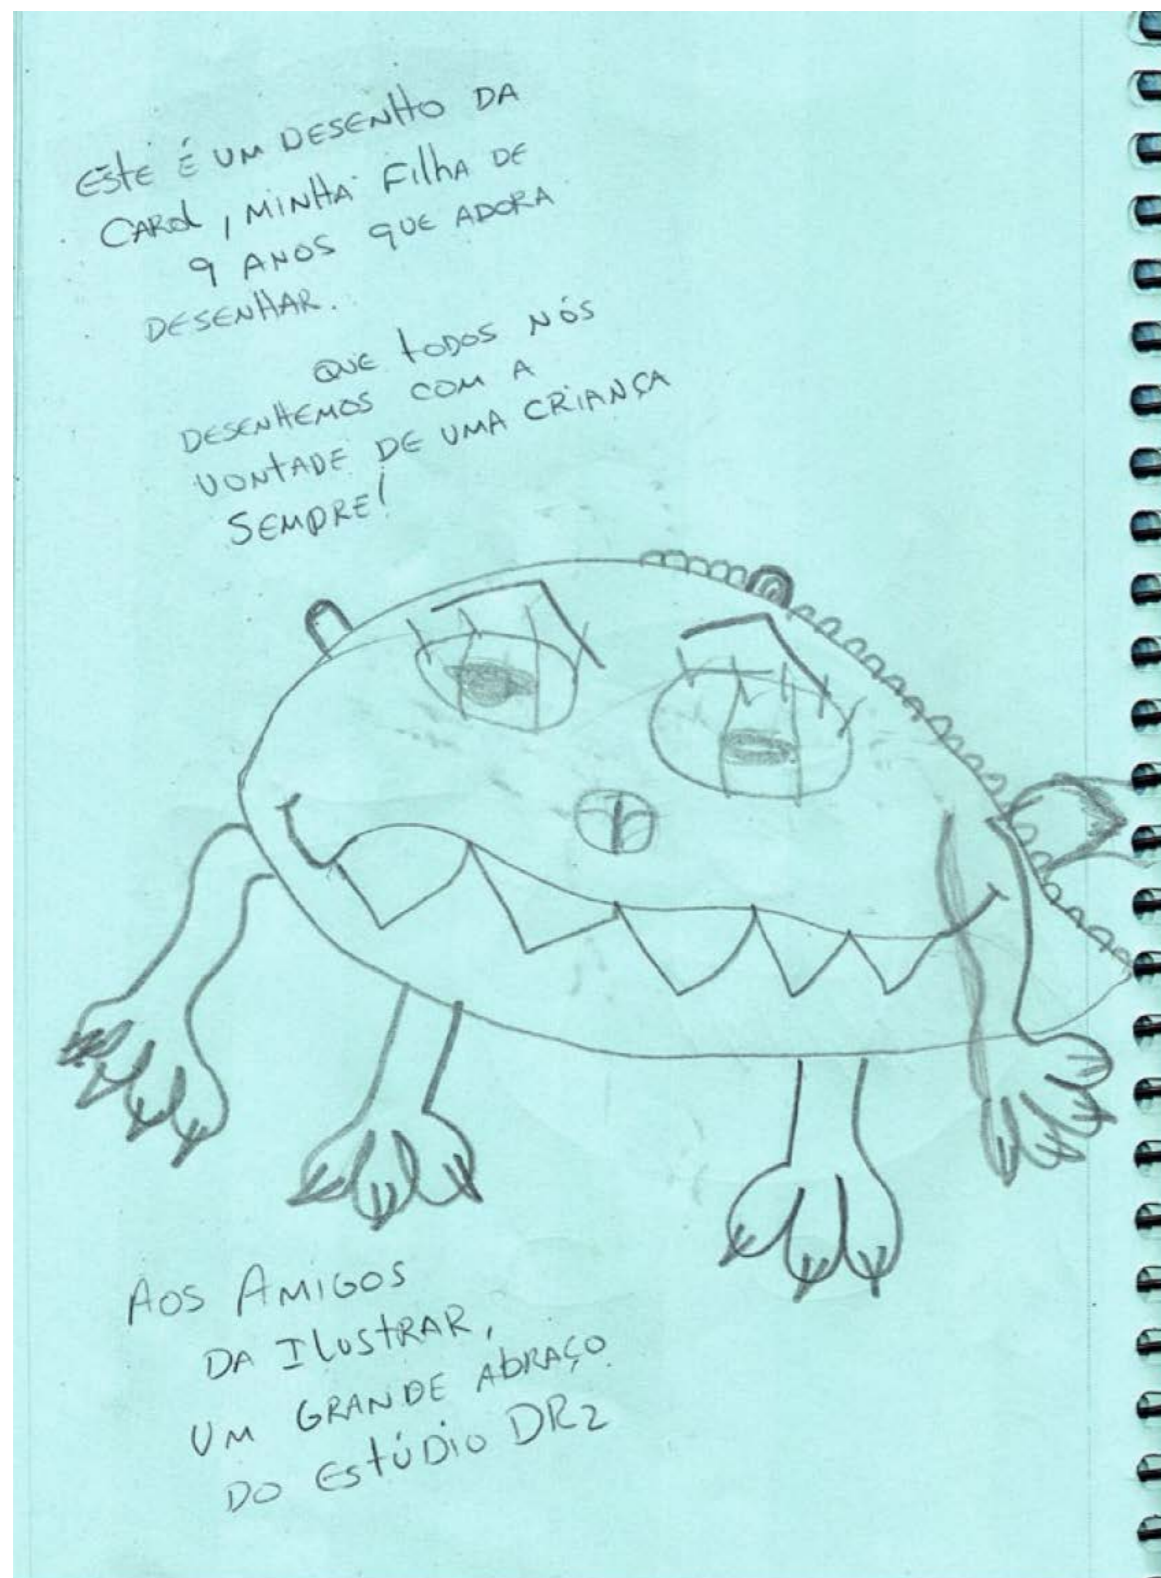 ESTE É UM DESENHO DA
CAROL, MINHA FILHA DE
9 ANOS QUE ADORA
DESENHAR.
QUE TODOS NÓS
DESENHEMOS COM A
VONTADE DE UMA CRIANÇA
SEMPRE!
AOS AMIGOS
DA ILUSTRAR,
UM GRANDE ABRAÇO
DO ESTÚDIO DR2